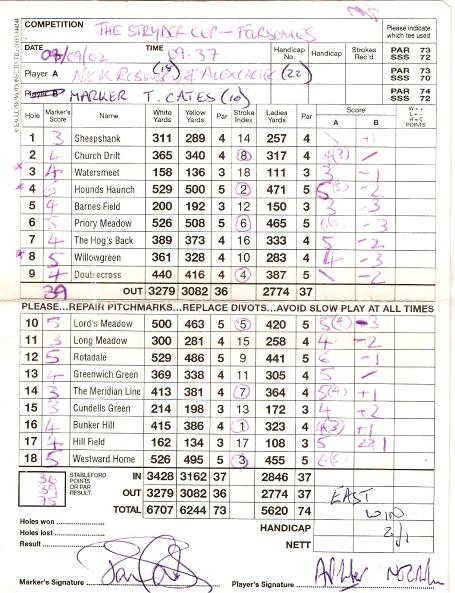 COMPETITION THE STRYDER CUP - FOURSOMES
Please indicate which tee used
DATE 09/02 TIME 09.37 Handicap No. Handicap Strokes Rec'd PAR 73 SSS 72
Player A NICK ROBINSON (18) & ALEX (22) PAR 73 SSS 70
Player B MARKER T. CATES (10) PAR 74 SSS 72
Hole Marker's Score Name White Yards Yellow Yards Par Stroke Index Ladies Yards Par Score A B W = + L = - H = 0 POINTS
1 3 Sheepshank 311 289 4 14 257 4 \ +1
2 4 Church Drift 365 340 4 8 317 4
3 4 Watersmeet 158 136 3 18 111 3 3 -1
4 Hounds Haunch 529 500 5 2 471 5 -2
5 4 Barnes Field 200 192 3 12 150 3 3 -3
6 5 Priory Meadow 526 508 5 6 465 5 -3
7 4 The Hog's Back 389 373 4 16 333 4 5 -2
8 5 Willowgreen 361 328 4 10 283 4 4 -3
9 4 Doublecross 440 416 4 4 387 5 \ -2
39 OUT 3279 3082 36 2774 37
PLEASE...REPAIR PITCHMARKS...REPLACE DIVOTS...AVOID SLOW PLAY AT ALL TIMES
10 5 Lord's Meadow 500 463 5 5 420 5 5(4) -3
11 3 Long Meadow 300 281 4 15 258 4 4 -2
12 5 Rotadale 529 486 5 9 441 5 6 -1
13 4 Greenwich Green 369 338 4 11 305 4 5 /
14 3 The Meridian Line 413 381 4 7 364 4 5(4) +1
15 3 Cundells Green 214 198 3 13 172 3 4 +2
16 4 Bunker Hill 415 386 4 1 323 4 4(3) +1
17 4 Hill Field 162 134 3 17 108 3 5 1
18 5 Westward Home 526 495 5 3 455 5
36 STABLEFORD POINTS OR PAR RESULT IN 3428 3162 37 2846 37
39 OUT 3279 3082 36 2774 37 EAST
75 TOTAL 6707 6244 73 5620 74 WIN
Holes won HANDICAP 2/1
Holes lost
Result NETT
Marker's Signature Player's Signature